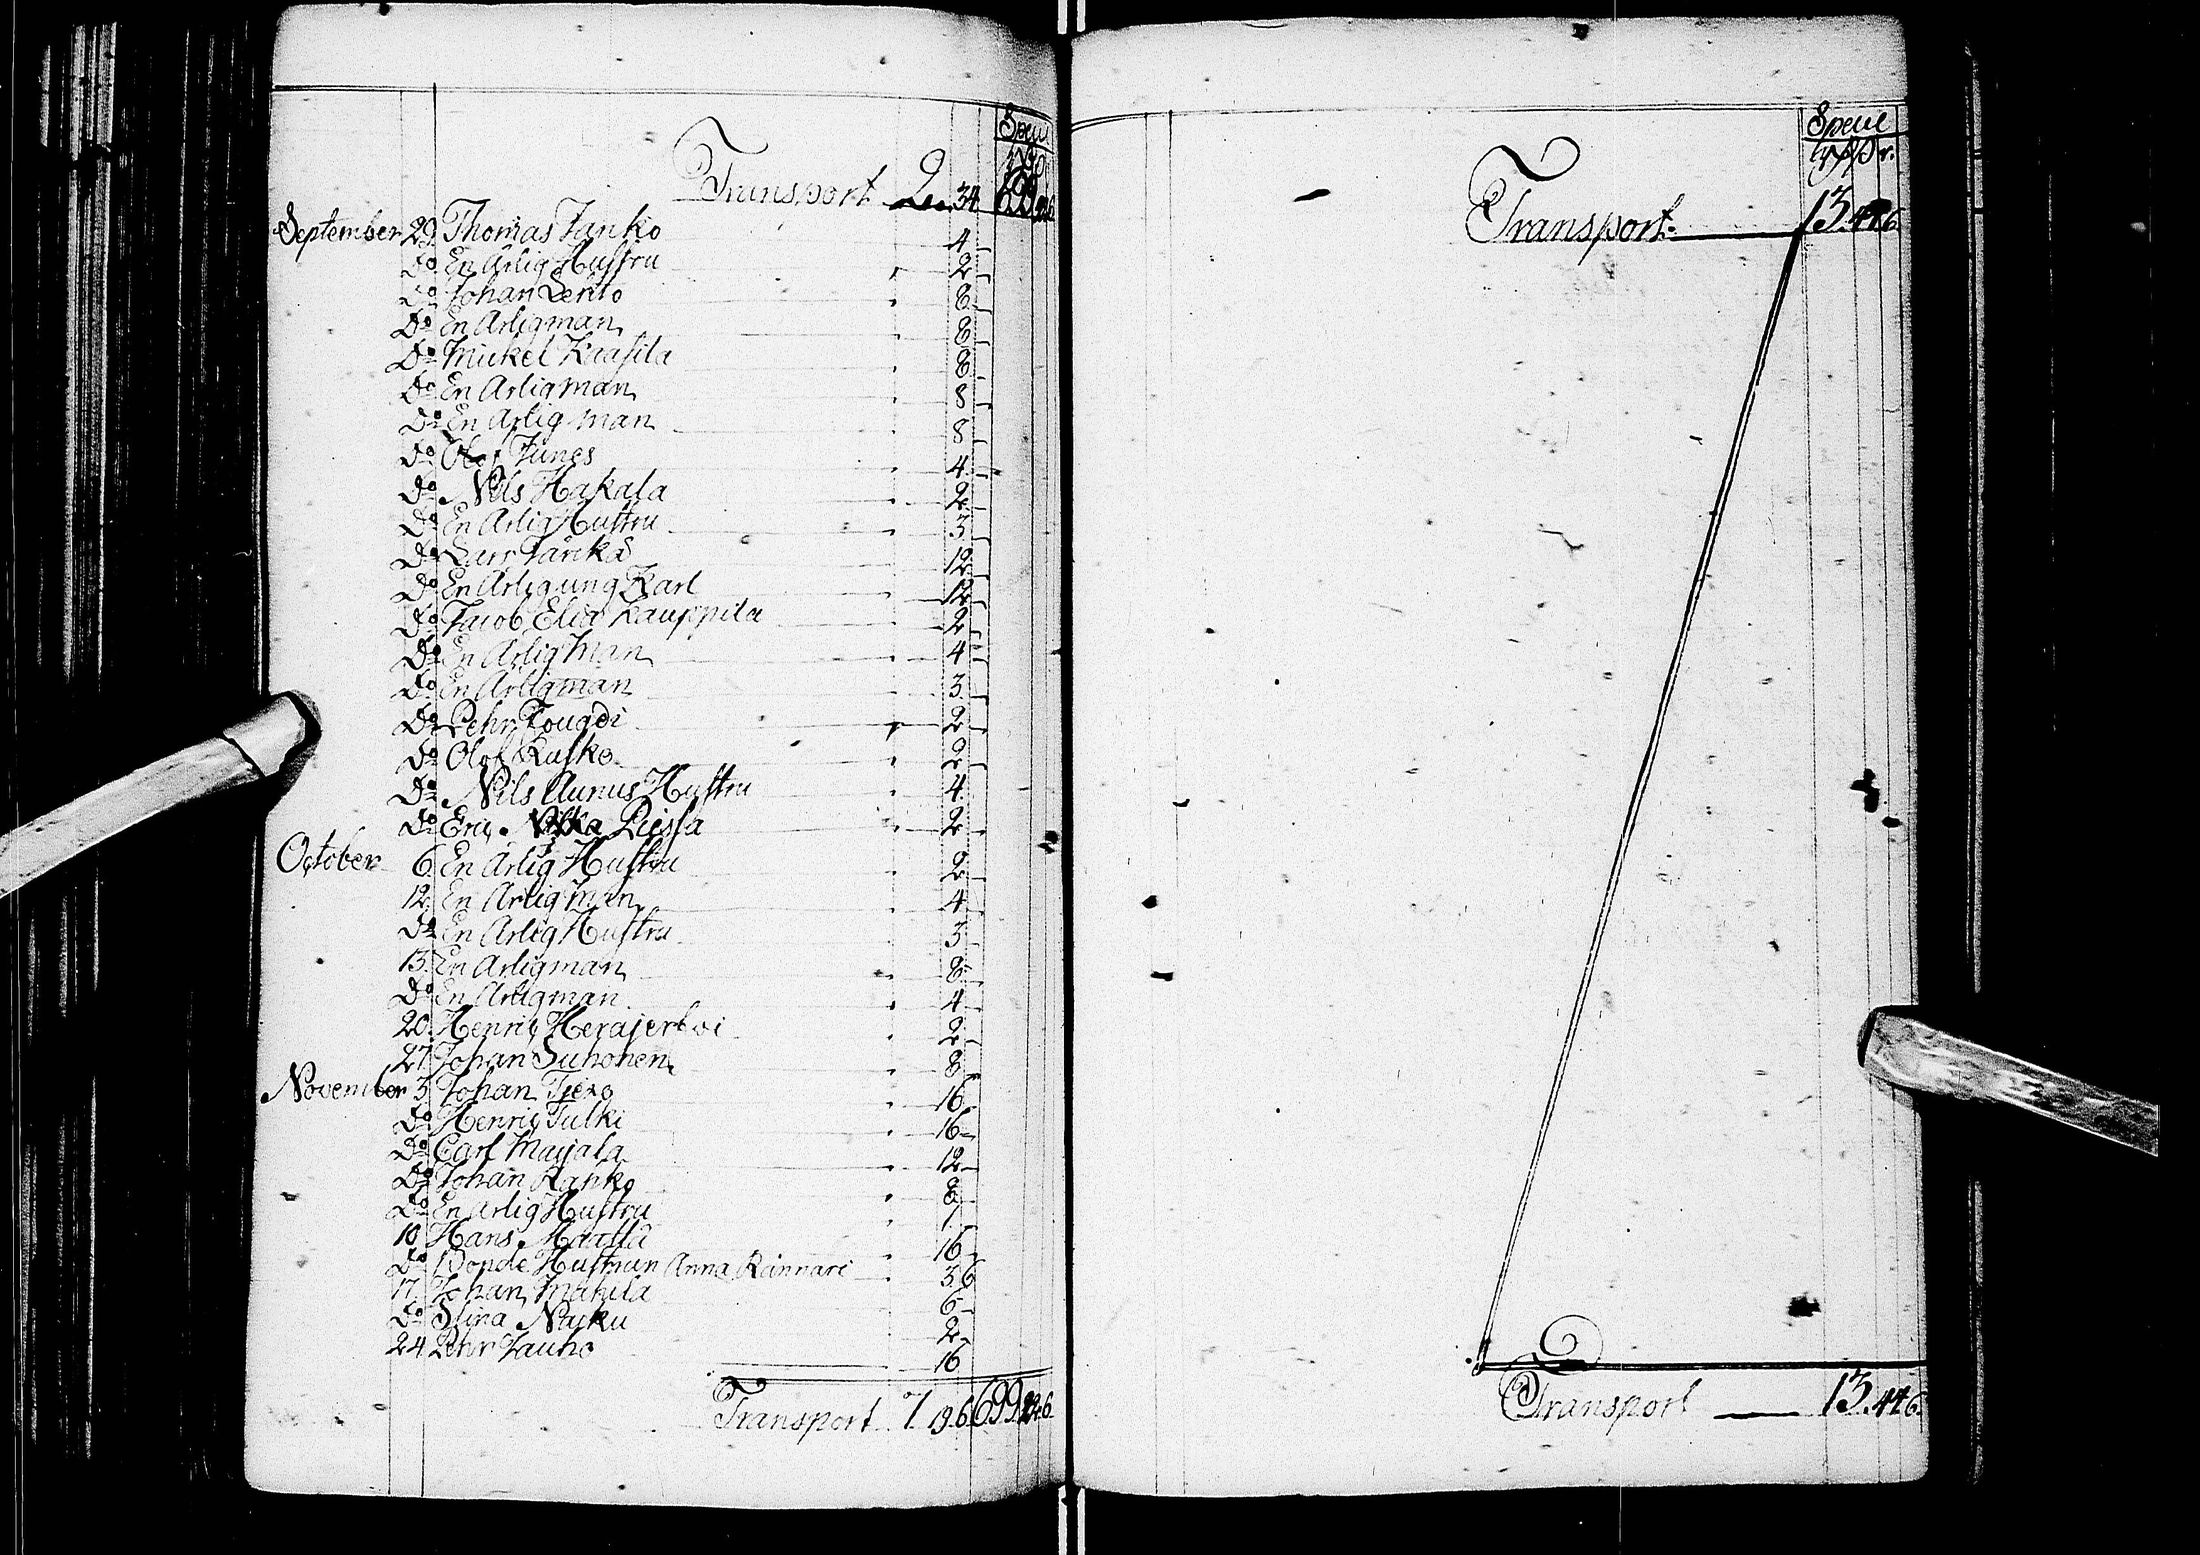 Specie
Transport 2. 34 699. 22. 6
September 29. Thomas Janko 4
Do En Ärlig Hustru 2
Do Johan Lerito 8
Do En Ärligman 8
Do Mickel Krasila 8
Do En Ärligman 8
Do En Ärlig man 8
Do Olof Junes 4
Do Nils Hakala 2
Do En Ärlig Hustru 3
Do Lars 12
Do En Ärlig ung Karl 12
Do Jacob Elia Kauppila 2
Do En Ärlig Man 4
Do En Ärligman 3
Do Pehr 2
Do Olof Rusko 2
Do Nils Aunus Hustru 4
Do Eric 2
October 6 En Ärlig Hustru 2
12. En Ärlig man 4
Do En Ärlig Hustru 3
13. En Ärligman 8
Do En Ärligman 4
20. Henric Herajerfwi 2
27. Johan Suhonen 8
November 3 Johan Tjero 16
Do Henric Julki 16
Do Carl Maijala 12
Do Johan Ranko 8
Do En Ärlig Hustru 1
10 Hans Maatta 16
Do Bonde Hustrun Anna Rannari 3. 6
17. Johan Mahila 6
Do Stina Nacku 2
24 Pehr Jauho 16
Transport 7. 19. 6 699. 22. 6
Specie
Transport 13. 44. 6
Transport 13. 44. 6